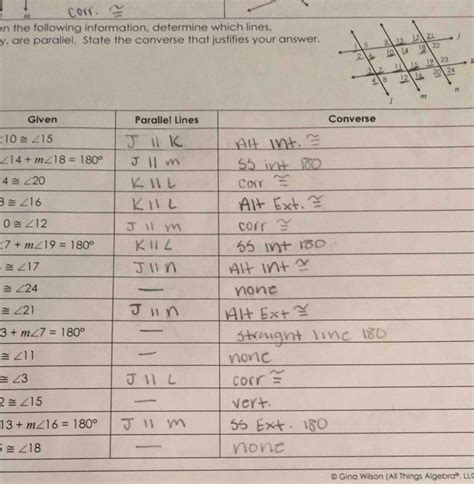 corr. ≅
en the following information, determine which lines,
y, are parallel. State the converse that justifies your answer.
Given Parallel Lines Converse
∠10 ≅ ∠15 J || K Alt Int. ≅
∠14 + m∠18 = 180° J || m SS int 180
4 ≅ ∠20 K || L corr ≅
3 ≅ ∠16 K || L Alt Ext. ≅
0 ≅ ∠12 J || m corr ≅
∠7 + m∠19 = 180° K || L SS int 180
≅ ∠17 J || n Alt int ≅
≅ ∠24 — none
≅ ∠21 J || n Alt Ext ≅
3 + m∠7 = 180° — straight line 180
≅ ∠11 — none
≅ ∠3 J || L corr ≅
2 ≅ ∠15 — vert.
13 + m∠16 = 180° J || m SS Ext. 180
≅ ∠18 — none
© Gina Wilson (All Things Algebra®, LLC